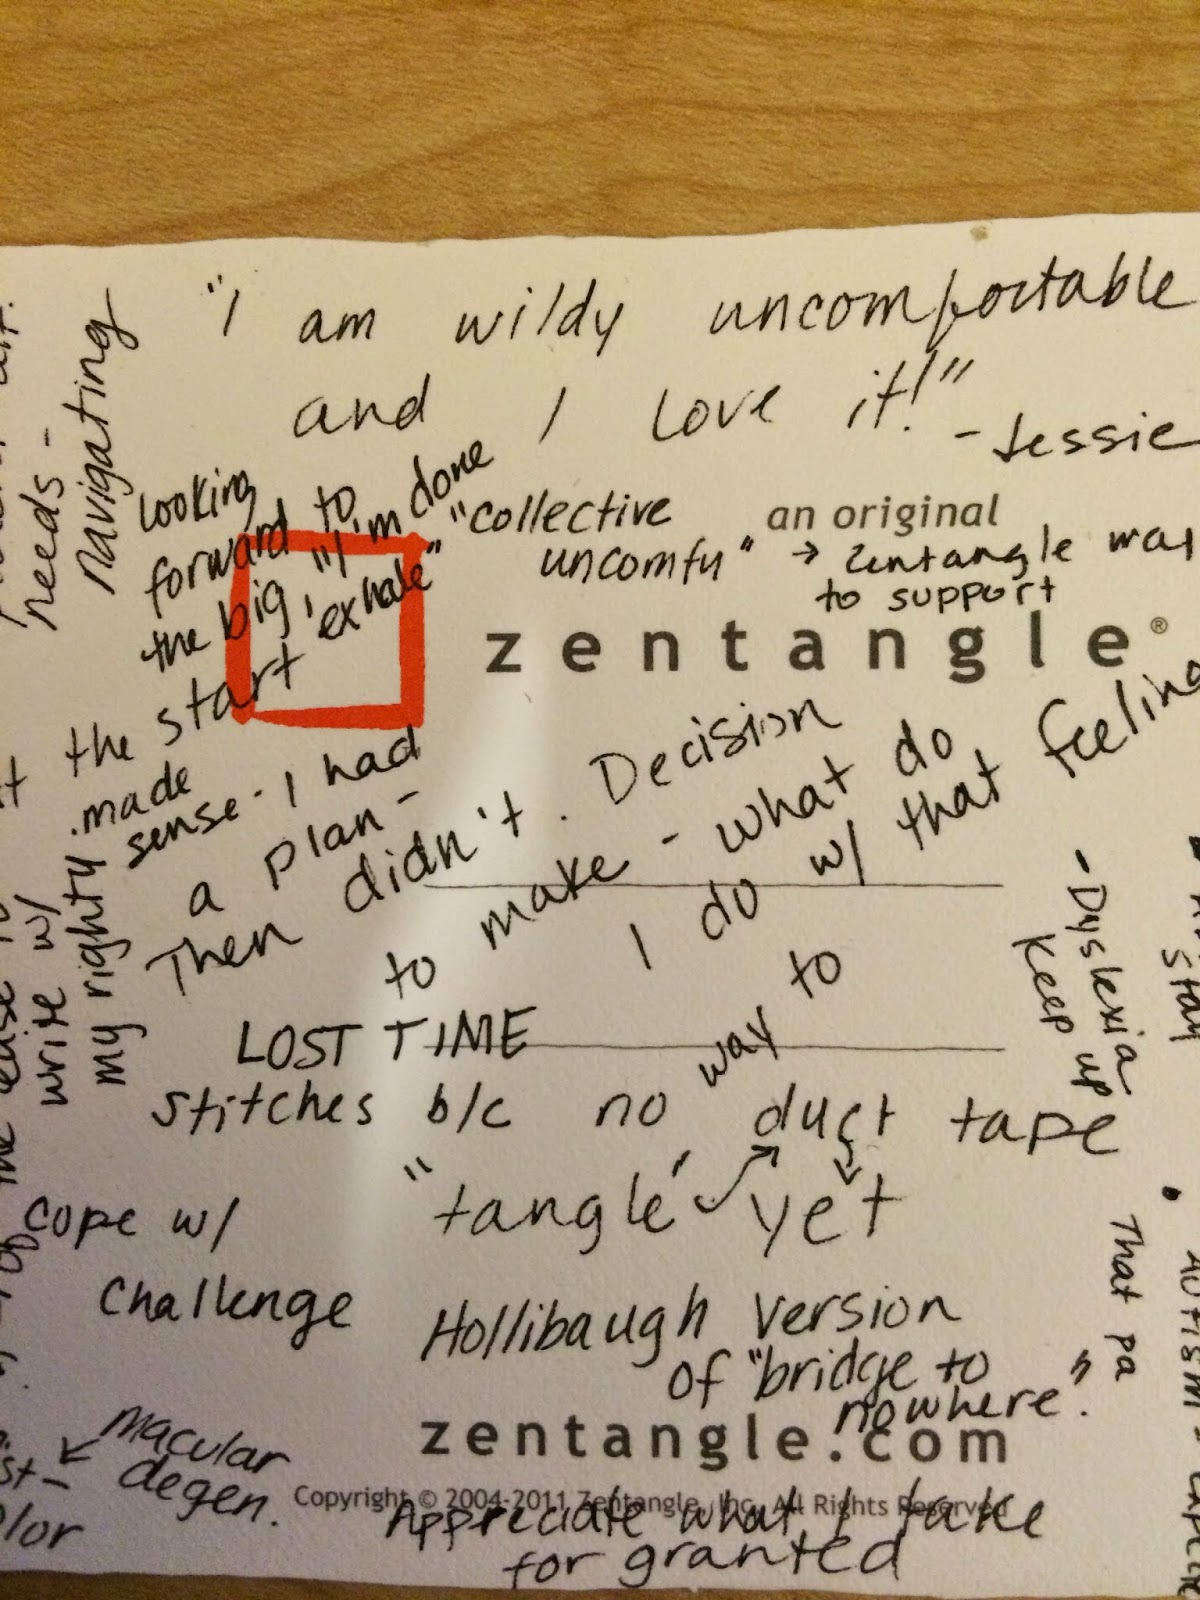 "I am wildy uncomfortable
and I love it!"
- Jessie
needs -
navigating
looking
forward to
the big "I'm done
'exhale"
"collective
uncomfy"
an original
→ zentangle way
to support
zentangle®
the start
made
sense - I had
a plan -
Then didn't. Decision
to make - what do
I do w/ that feeling
write w/
my righty
LOST TIME
- Dyslexia
keep up
stay
stitches b/c no way to
duct tape
"tangle" yet
cope w/
challenge
That pa
Hollibaugh version
of "bridge to
nowhere".
zentangle.com
macular
degen.
Copyright © 2004-2011 Zentangle, Inc. All Rights Reserved
Appreciate what I take
for granted